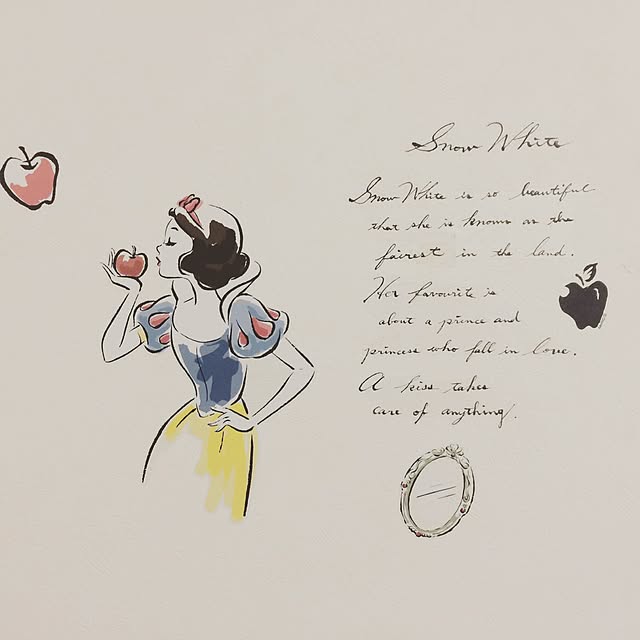 Snow White
Snow White is so beautiful
that she is known as the
fairest in the land.
Her favourite is
about a prince and
princess who fall in love.
A kiss takes
care of anything.